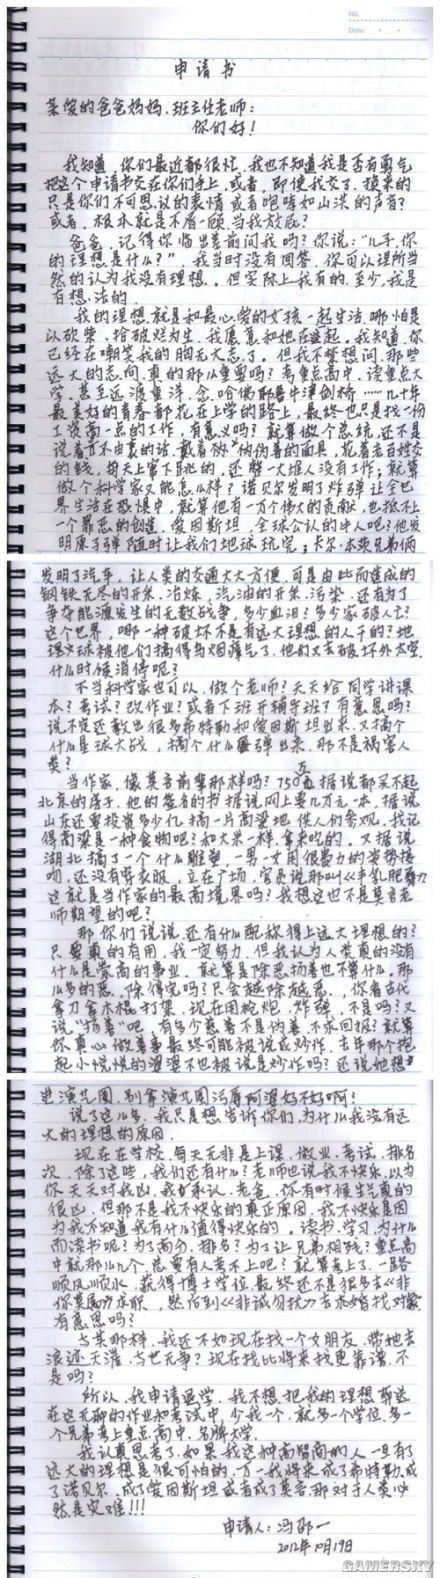 NO.
Date
申请书
亲爱的爸爸妈妈、班主任老师：
你们好！
我知道，你们最近都很忙，我也不知道我是否有勇气
把这个申请书交在你们手上，或者，即使我交了，换来的
只是你们不可思议的表情或者咆哮如山洪的声音？
或者，根本就是不屑一顾，当我放屁？
爸爸，记得你临出差前问我吗？你说：“儿子，你
的理想是什么？”，我当时没有回答，你可以理所当
然的认为我没有理想。但实际上我有的，至少，我是
有想法的。
我的理想，就是和最心爱的女孩一起生活，哪怕是
以砍柴、拾破烂为生，我愿意和她在一起。我知道，你
已经在嘲笑我的胸无大志了。但我不禁想问，那些
远大的志向，真的那么重要吗？考重点高中，读重点大
学，甚至远渡重洋，念哈佛耶鲁牛津剑桥……几十年
最美好的青春都花在上学的路上，最终也只是找一份
工资高一点的工作，有意义吗？就算做个总统，还不是
说着言不由衷的话，戴着伪善的面具，花着老百姓交
的钱，每天上窜下跳的，还帮一大堆人没有工作；就算
做个科学家又能怎么样？诺贝尔发明了炸弹，让全世
界生活在恐惧中，就算他有一万个伟大的贡献，也抵不上
一个罪恶的创造，爱因斯坦，全球公认的牛人吧？他发
明原子弹随时让我们地球玩完；卡尔·本茨兄弟俩
发明了汽车，让人类的交通大大方便，可是由此而造成的
钢铁无尽的开采、冶炼，汽油的开采、污染，还有为了
争夺能源发生的无数战争，多少血泪？多少家破人亡？
这个世界，哪一种破坏不是有远大理想的人干的？地
球被他们搞得乌烟瘴气了，他们又去破坏外太空，
什么时候消停呢？
不当科学家也可以，做个老师？天天给同学讲课
本？考试？改作业？或者下班开辅导班？有意思吗？
说不定还教出很多希特勒和爱因斯坦出来，又搞个
什么星球大战，搞个什么弹出来，那不是祸害人
类？
当作家，像莫言前辈那样吗？750万，据说都买不起
北京的房子，他的签名的书据说网上要几万元一本，据说
山东还要投资多少亿，搞一片高粱地，供人们参观，我记
得高粱是一种食物吧？和大米一样，拿来吃的。又据说
湖北搞了一个什么雕塑，一男一女用很费力的姿势接
吻，还没有穿衣服，立在广场，官员说那叫《丰乳肥臀》，
这就是当作家的最高境界吗？我想这也不是莫言老
师期望的吧？
那你们说说，还有什么配称得上远大理想的？
只要真的有用，我一定努力，但我认为人类真的没有
什么是崇高的事业，就算是除恶扬善也不算什么，那
么多的恶，除得完吗？只会越除越恶，你看古代
拿刀拿木棍打架，现在用枪炮、炸弹，不是吗？又
说“扬善”吧，有多少慈善不是伪善、不求回报？就算
你真心做善事最终可能被说成炒作，去年那个抱
起小悦悦的婆婆不也被说是炒作吗？还说她想
进演艺圈，别拿演艺圈污辱阿婆好不好啊？
说了这么多，我只是想告诉你们，为什么我没有远
大的理想的原因。
现在在学校，每天无非是上课、做业、考试、排名
次，除了这些，我们还有什么？老师也说我不快乐，以为
你天天对我凶，我承认，老爸，你有时候生气真的
很凶，但那不是我不快乐的真正原因，我不快乐是因
为我不知道我有什么值得快乐的，读书、学习，为什么
而读书呢？为了高分、排名？为了让兄弟相残？重点高
中就那么几个，总要有人考不上吧？就算考上了，一路
顺风顺水，获得博士学位，最终还不是很多去《非
你莫属》求职，然后到《非诚勿扰》去求婚找对象？
有意思吗？
与其那样，我还不如现在找一个女朋友，带她去
浪迹天涯，与世无争？现在找比将来找更靠谱，不
是吗？
所以，我申请退学，我不想把我的理想葬送
在这无聊的作业和考试中，少我一个，就多一个学位，多一
个兄弟考上重点高中、名牌大学。
我认真思考了，如果我这种高智商的人一旦有了
远大的理想是很可怕的，万一我将来成了希特勒，成
了诺贝尔，成了爱因斯坦或者成了莫言，那对于人类必
然是灾难！！！
申请人：冯邵一
2012年10月19日
GAMERSKY